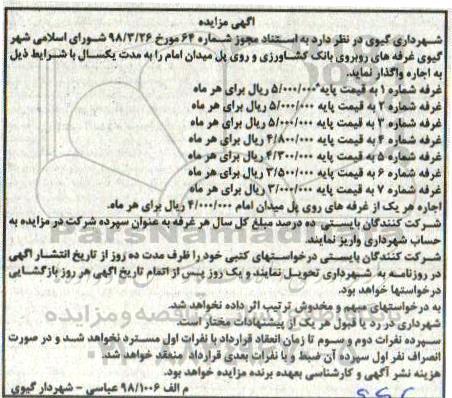 آگهی مزایده
شهرداری گیوی در نظر دارد به استناد مجوز شماره ۶۴ مورخ ۹۸/۳/۲۶ شورای اسلامی شهر
گیوی غرفه های روبروی بانک کشاورزی و روی پل میدان امام را به مدت یکسال با شرایط ذیل
به اجاره واگذار نماید.
غرفه شماره ۱ به قیمت پایه ۵/۰۰۰/۰۰۰ ریال برای هر ماه
غرفه شماره ۲ به قیمت پایه ۵/۰۰۰/۰۰۰ ریال برای هر ماه
غرفه شماره ۳ به قیمت پایه ۵/۰۰۰/۰۰۰ ریال برای هر ماه
غرفه شماره ۴ به قیمت پایه ۴/۸۰۰/۰۰۰ ریال برای هر ماه
غرفه شماره ۵ به قیمت پایه ۴/۳۰۰/۰۰۰ ریال برای هر ماه
غرفه شماره ۶ به قیمت پایه ۳/۵۰۰/۰۰۰ ریال برای هر ماه
غرفه شماره ۷ به قیمت پایه ۳/۰۰۰/۰۰۰ ریال برای هر ماه
اجاره هر یک از غرفه های روی پل میدان امام ۴/۰۰۰/۰۰۰ ریال برای هر ماه.
شرکت کنندگان بایستی ده درصد مبلغ کل سال هر غرفه به عنوان سپرده شرکت در مزایده به
حساب شهرداری واریز نمایند.
شرکت کنندگان بایستی درخواستهای کتبی خود را ظرف مدت ده روز از تاریخ انتشار آگهی
در روزنامه به شهرداری تحویل نمایند و یک روز پس از اتمام تاریخ آگهی هر روز بازگشایی
درخواستها خواهد بود.
به درخواستهای مبهم و مخدوش ترتیب اثر داده نخواهد شد.
شهرداری در رد یا قبول هر یک از پیشنهادات مختار است.
سپرده نفرات دوم و سوم تا زمان انعقاد قرارداد با نفرات اول مسترد نخواهد شد و در صورت
انصراف نفر اول سپرده آن ضبط و با نفرات بعدی قرارداد منعقد خواهد شد.
هزینه نشر آگهی و کارشناسی بعهده برنده مزایده خواهد بود.
م الف ۹۸/۱۰۰۶ عباسی - شهردار گیوی